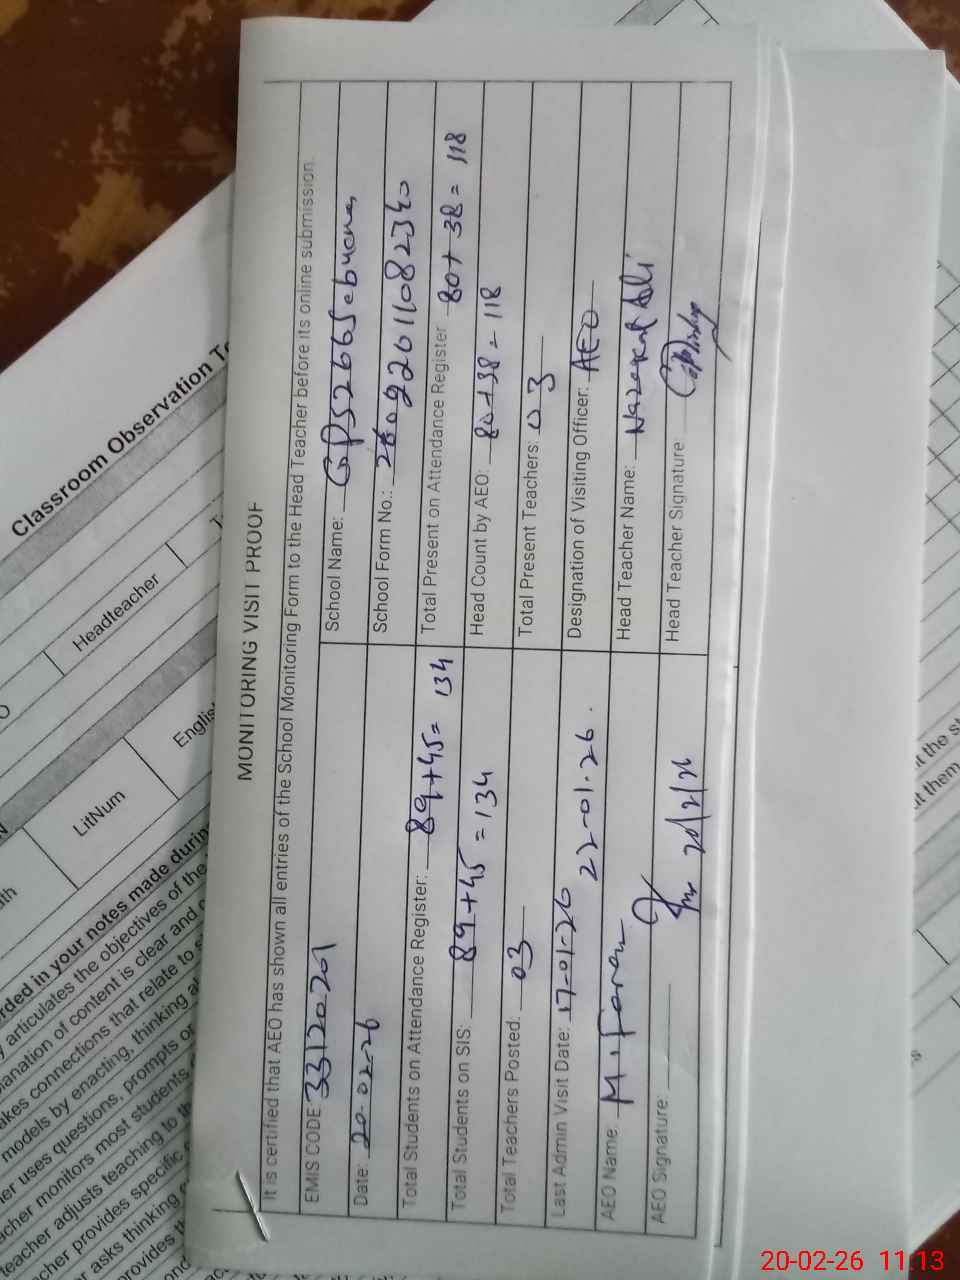 MONITORING VISIT PROOF
It is certified that AEO has shown all entries of the School Monitoring Form to the Head Teacher before its online submission.
EMIS CODE 33120201
School Name: GPS 266
Date: 20-02-26
School Form No.: 092201108 2340
Total Students on Attendance Register: 89+45= 134
Total Present on Attendance Register 80+ 38= 118
Total Students on SIS: 89+45 = 134
Head Count by AEO: 80+38 = 118
Total Teachers Posted: 03
Total Present Teachers: 03
Last Admin Visit Date: 17-01-26 22-01-26.
Designation of Visiting Officer: AEO
AEO Name: M.
Head Teacher Name: Ali
AEO Signature: 20/2/26
Head Teacher Signature:
Classroom Observation
Headteacher
LitNum
Englis
rded in your notes made durin
articulates the objectives of the
lanation of content is clear and
akes connections that relate to
models by enacting, thinking
er uses questions, prompts or
cher monitors most students
teacher adjusts teaching to
cher provides specific
asks thinking
provides
20-02-26 11:13